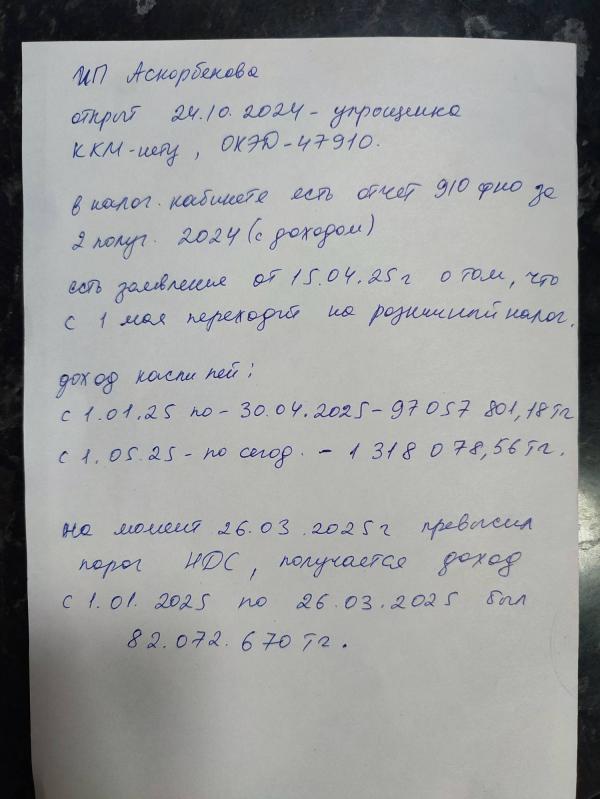 ИП Аскорбекова
открыт 24.10.2024 - упрощенка
ККМ-нету, ОКЭД-47910.
в налог. кабинете есть отчет 910 фно за
2 полуг. 2024 (с доходом)
есть заявление от 15.04.25г о том, что
с 1 мая переходит на розничный налог.
доход каспи пей:
с 1.01.25 по - 30.04.2025 - 97 057 801,18 тг
с 1.05.25 - по сегод. - 1 318 078,56 тг.
на момент 26.03.2025г превысил
порог НДС, получается доход
с 1.01.2025 по 26.03.2025 был
82.072.670 тг.